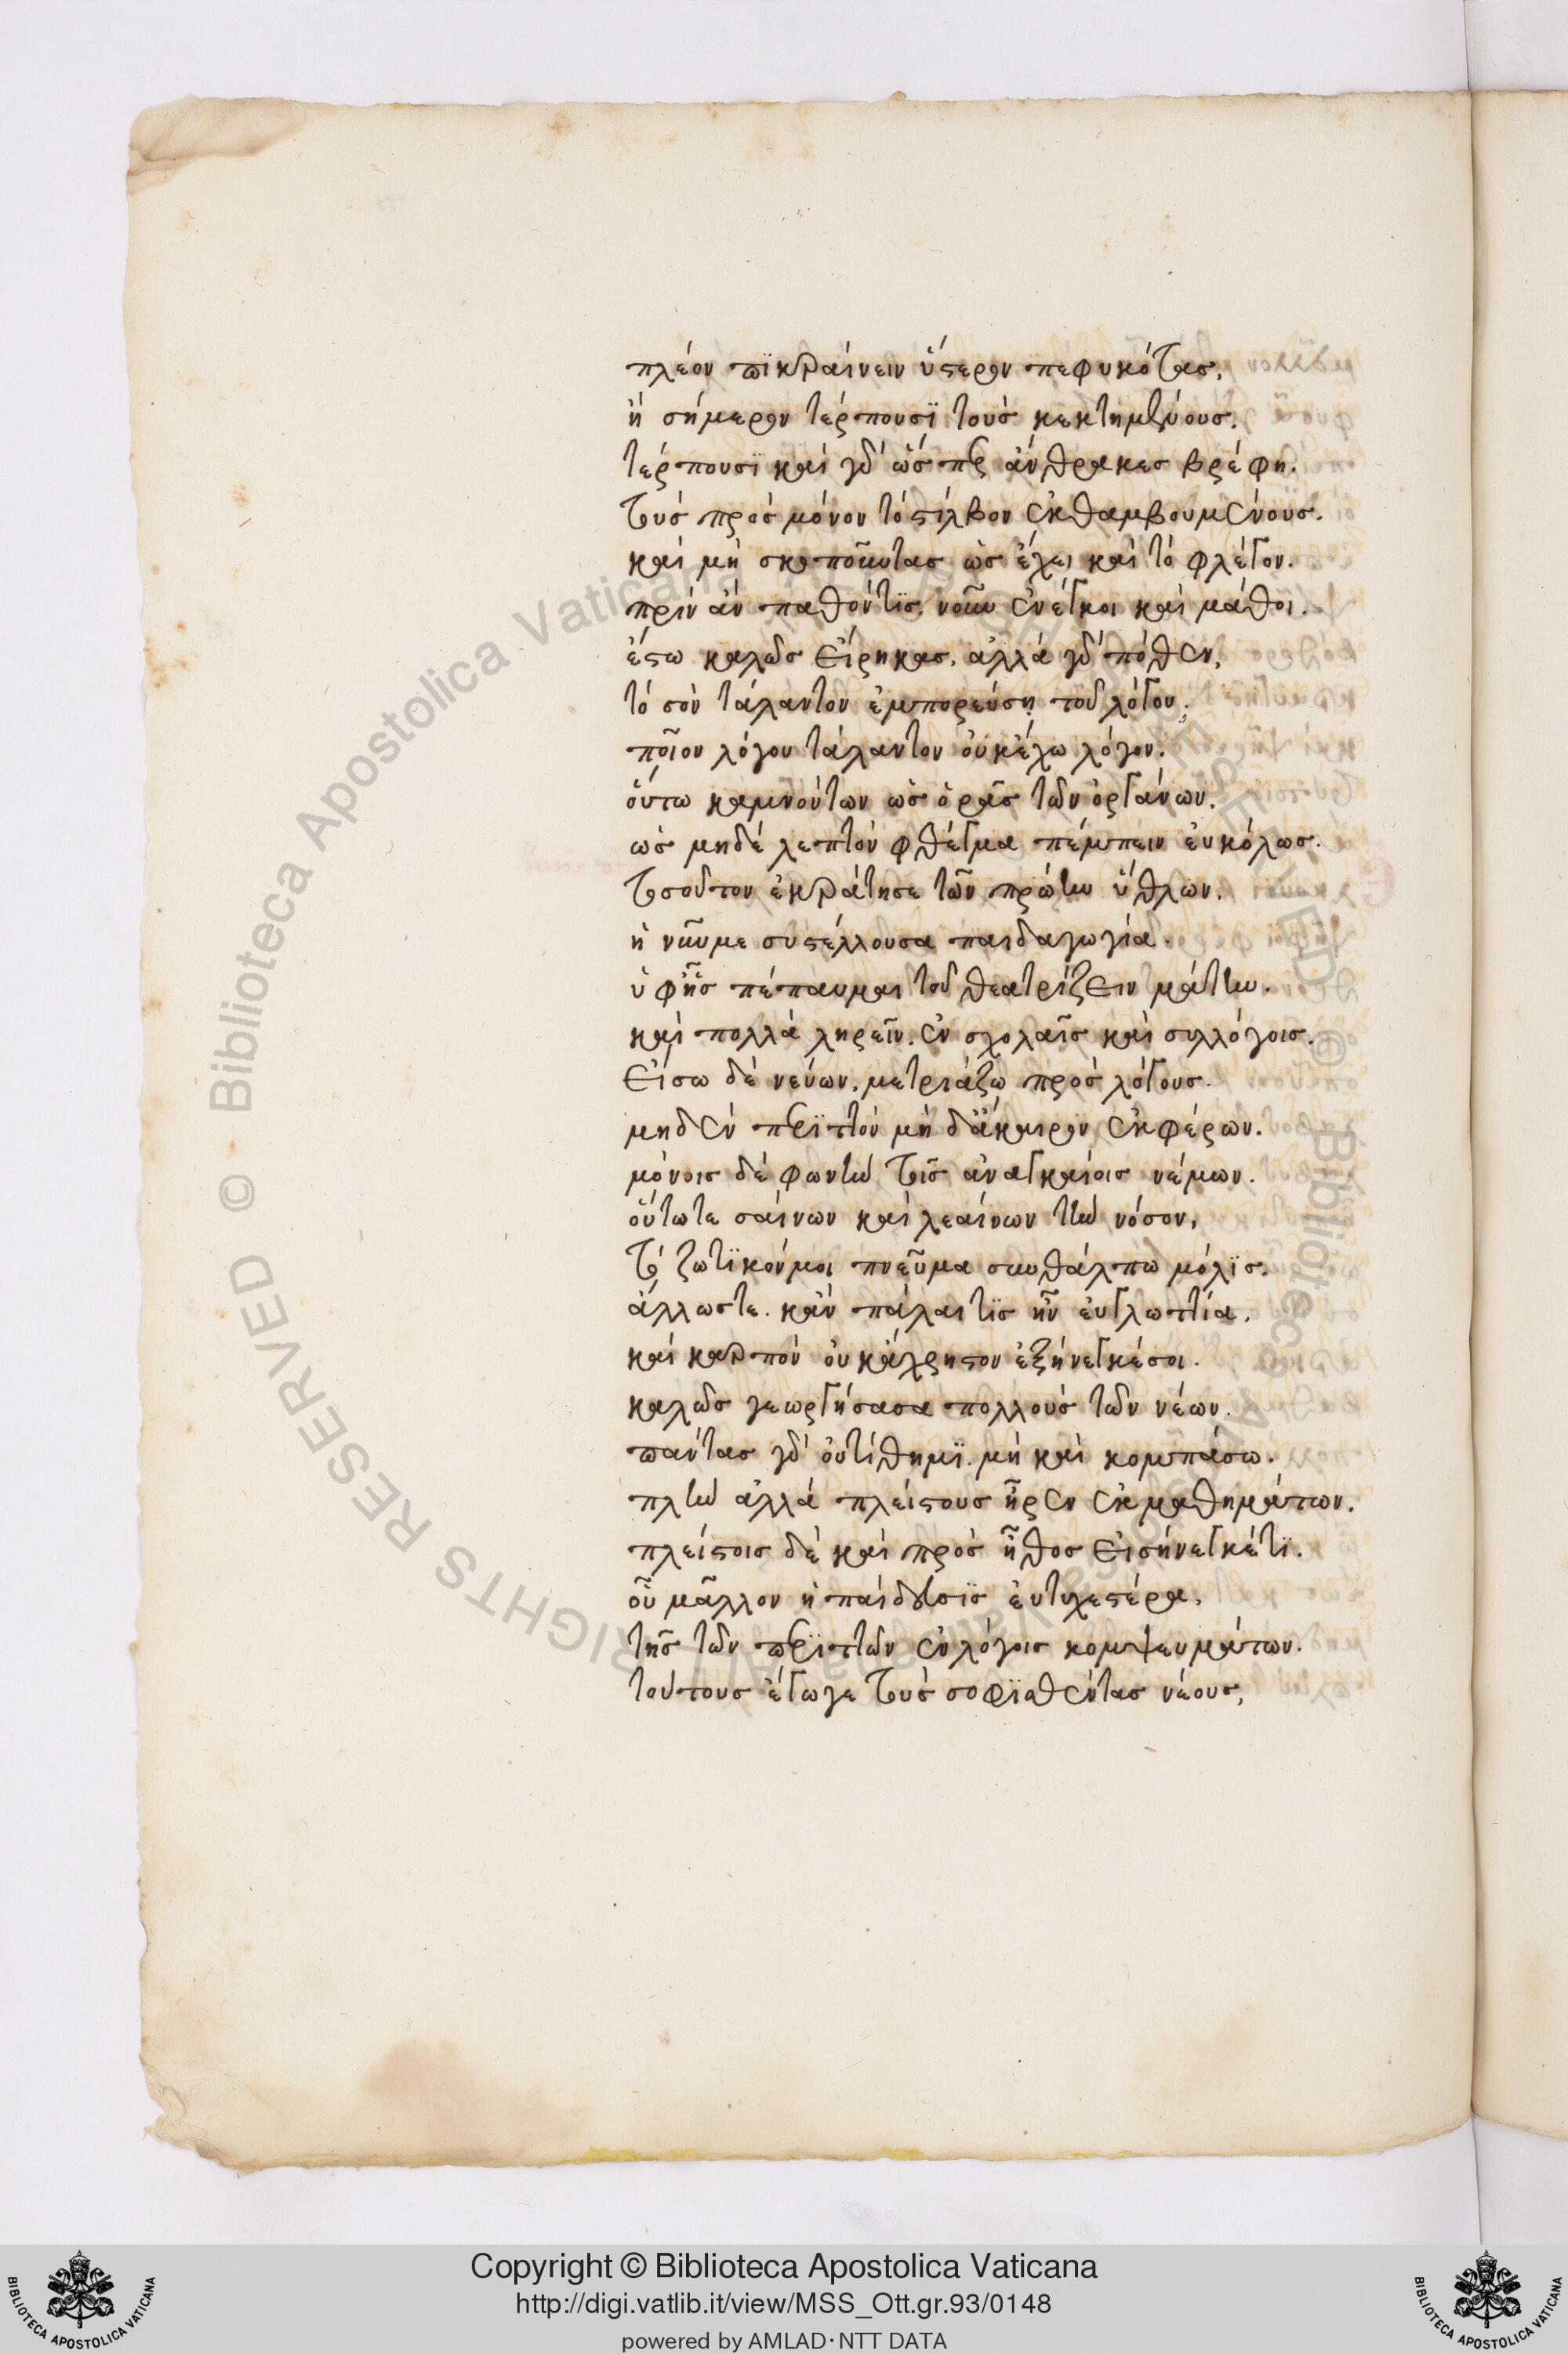 πλέον πϊκραίνειν ὕστερον πεφυκότας,
ἢ σήμερον τέρπουσϊ τοὺς κεκτημένους.
τέρπουσϊ καὶ γὰρ ὥσπερ ἄνθρακες βρέφη.
τοὺς πρὸς μόνον τὸ στίλβον ἐκθαμβουμένους.
καὶ μὴ σκοποῦντας ὡς ἔχει καὶ τὸ φλέγον.
πρὶν ἂν παθόντϊς, νοῦν ἐνέγκοι καὶ μάθοι.
ἔστω καλῶς εἴρηκας, ἀλλὰ γὰρ πόθεν,
τὸ σὸν τάλαντον ἐμπορεύσῃ τοῦ λόγου;
ποῖον λόγου τάλαντον οὐκ ἔχω λόγον.
οὕτω καμνόντων ὡς ὁρᾶς τῶν ὀργάνων.
ὡς μηδὲ λεπτὸν φθέγμα πέμπειν εὐκόλως.
τοσοῦτον ἐκράτησε τῶν πρώτων ὕθλων.
ἡ νῦν με συστέλλουσα παιδαγωγία.
ὑφ' ἧς πέπαυμαι τοῦ θεατρίζειν μάτην.
καὶ πολλὰ ληρεῖν. ἐν σχολαῖς καὶ συλλόγοις.
εἴσω δὲ νεύων, μετριάζω πρὸς λόγους.
μηδὲν περϊττὸν μὴ δ' ἄκαιρον ἐκφέρων.
μόνοις δὲ φωνὴν τοῖς ἀναγκαίοις νέμων.
οὕτωτε σαίνων καὶ λεαίνων τὴν νόσον,
τὸ ζωτϊκόν μοι πνεῦμα συνθάλπω μόλϊς.
ἄλλωστε. κἂν πάλαι τϊς ἦν εὐγλωττία.
καὶ καρπὸν οὐκ ἄχρηστον ἐξήνεγκέ σοι.
καλῶς γεωργήσασα πολλοὺς τῶν νέων.
πάντας γὰρ οὐ τίθημϊ. μὴ καὶ κομπάσω.
πλὴν ἀλλὰ πλείστους ἦρεν ἐκ μαθημάτων.
πλείστοις δὲ καὶ πρὸς ἦθος εἰσήνεγκέ τϊ.
οὗ μᾶλλον ἡ παίδευσϊς εὐτυχεστέρα,
τῆς τῶν περϊττῶν ἐν λόγοις κομψευμάτων.
τούτους ἔγωγε τοὺς σοφϊσθέντας νέους,
Copyright © Biblioteca Apostolica Vaticana
http://digi.vatlib.it/view/MSS_Ott.gr.93/0148
powered by AMLAD·NTT DATA